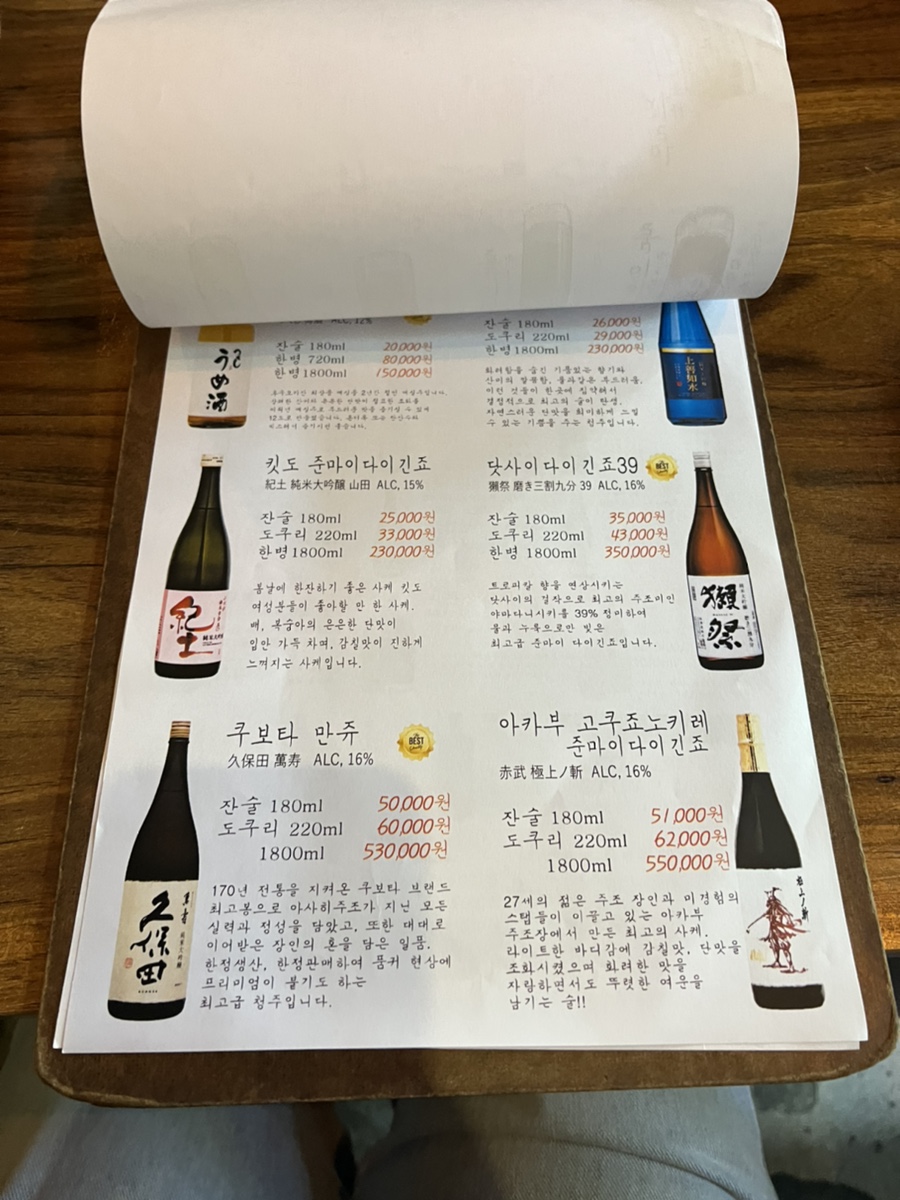 ALC, 12%
잔술 180ml 20,000원
한병 720ml 80,000원
한병 1800ml 150,000원
うめ酒
잔술 180ml 26,000원
도쿠리 220ml 29,000원
한병 1800ml 230,000원
화려함을 숨긴 기품있는 향기와
산미의 발랄함, 물과같은 부드러움,
이런 것들이 한곳에 집약해서
결정적으로 최고의 술이 탄생.
자연스러운 단맛을 희미하게 느낄
수 있는 기쁨을 주는 청주입니다.
上善如水
킷도 준마이다이긴죠
紀土 純米大吟醸 山田 ALC, 15%
잔술 180ml 25,000원
도쿠리 220ml 33,000원
한병 1800ml 230,000원
봄날에 한잔하기 좋은 사케 킷도
여성분들이 좋아할 만 한 사케.
배, 복숭아의 은은한 단맛이
입안 가득 차며, 감칠맛이 진하게
느껴지는 사케입니다.
紀土
닷사이다이긴죠39
BEST
獺祭 磨き三割九分 39 ALC, 16%
잔술 180ml 35,000원
도쿠리 220ml 43,000원
한병 1800ml 350,000원
트로피칼 향을 연상시키는
닷사이의 걸작으로 최고의 주조미인
야마다니시키를 39% 정미하여
물과 누룩으로만 빚은
최고급 준마이 다이긴죠입니다.
獺祭
쿠보타 만쥬
BEST
久保田 萬寿 ALC, 16%
잔술 180ml 50,000원
도쿠리 220ml 60,000원
1800ml 530,000원
170년 전통을 지켜온 쿠보타 브랜드
최고봉으로 아사히주조가 지닌 모든
실력과 정성을 담았고, 또한 대대로
이어받은 장인의 혼을 담은 일품,
한정생산, 한정판매하여 품귀 현상에
프리미엄이 붙기도 하는
최고급 청주입니다.
久保田
萬寿
아카부 고쿠죠노키레
준마이다이긴죠
赤武 極上ノ斬 ALC, 16%
잔술 180ml 51,000원
도쿠리 220ml 62,000원
1800ml 550,000원
27세의 젊은 주조 장인과 미경험의
스탭들이 이끌고 있는 아카부
주조장에서 만든 최고의 사케.
라이트한 바디감에 감칠맛, 단맛을
조화시켰으며 화려한 맛을
자랑하면서도 뚜렷한 여운을
남기는 술!!
極上ノ斬